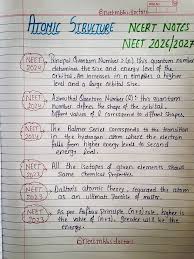 @neetmbbsdoctors
ATOMIC STRUCTURE NCERT NOTES
NEET 2026/2027
NEET 2024 Principal Quantum Number (n) this quantum number
determine the size and energy level of the
orbital. An increases in n implies a higher
and a large orbital.
NEET 2024 Azimuthal Quantum Number (l) this Quantum
number defines the shape of the orbital.
Different values of l correspond to different shapes.
NEET 2024 The Balmer Series corresponds to the transition
in the hydrogen atom where the electron
falls from higher energy levels to second
energy level.
NEET 2023 All the isotopes of given elements shows
same Chemical Properties
NEET 2023 Dalton's atomic theory, regarded the atom
as an ultimate particle of matter.
NEET 2023 As per Aufbau Principle, (n+l) rule, higher is
the value of (n+l), Greater will be the
energy.
@neetmbbsdoctors